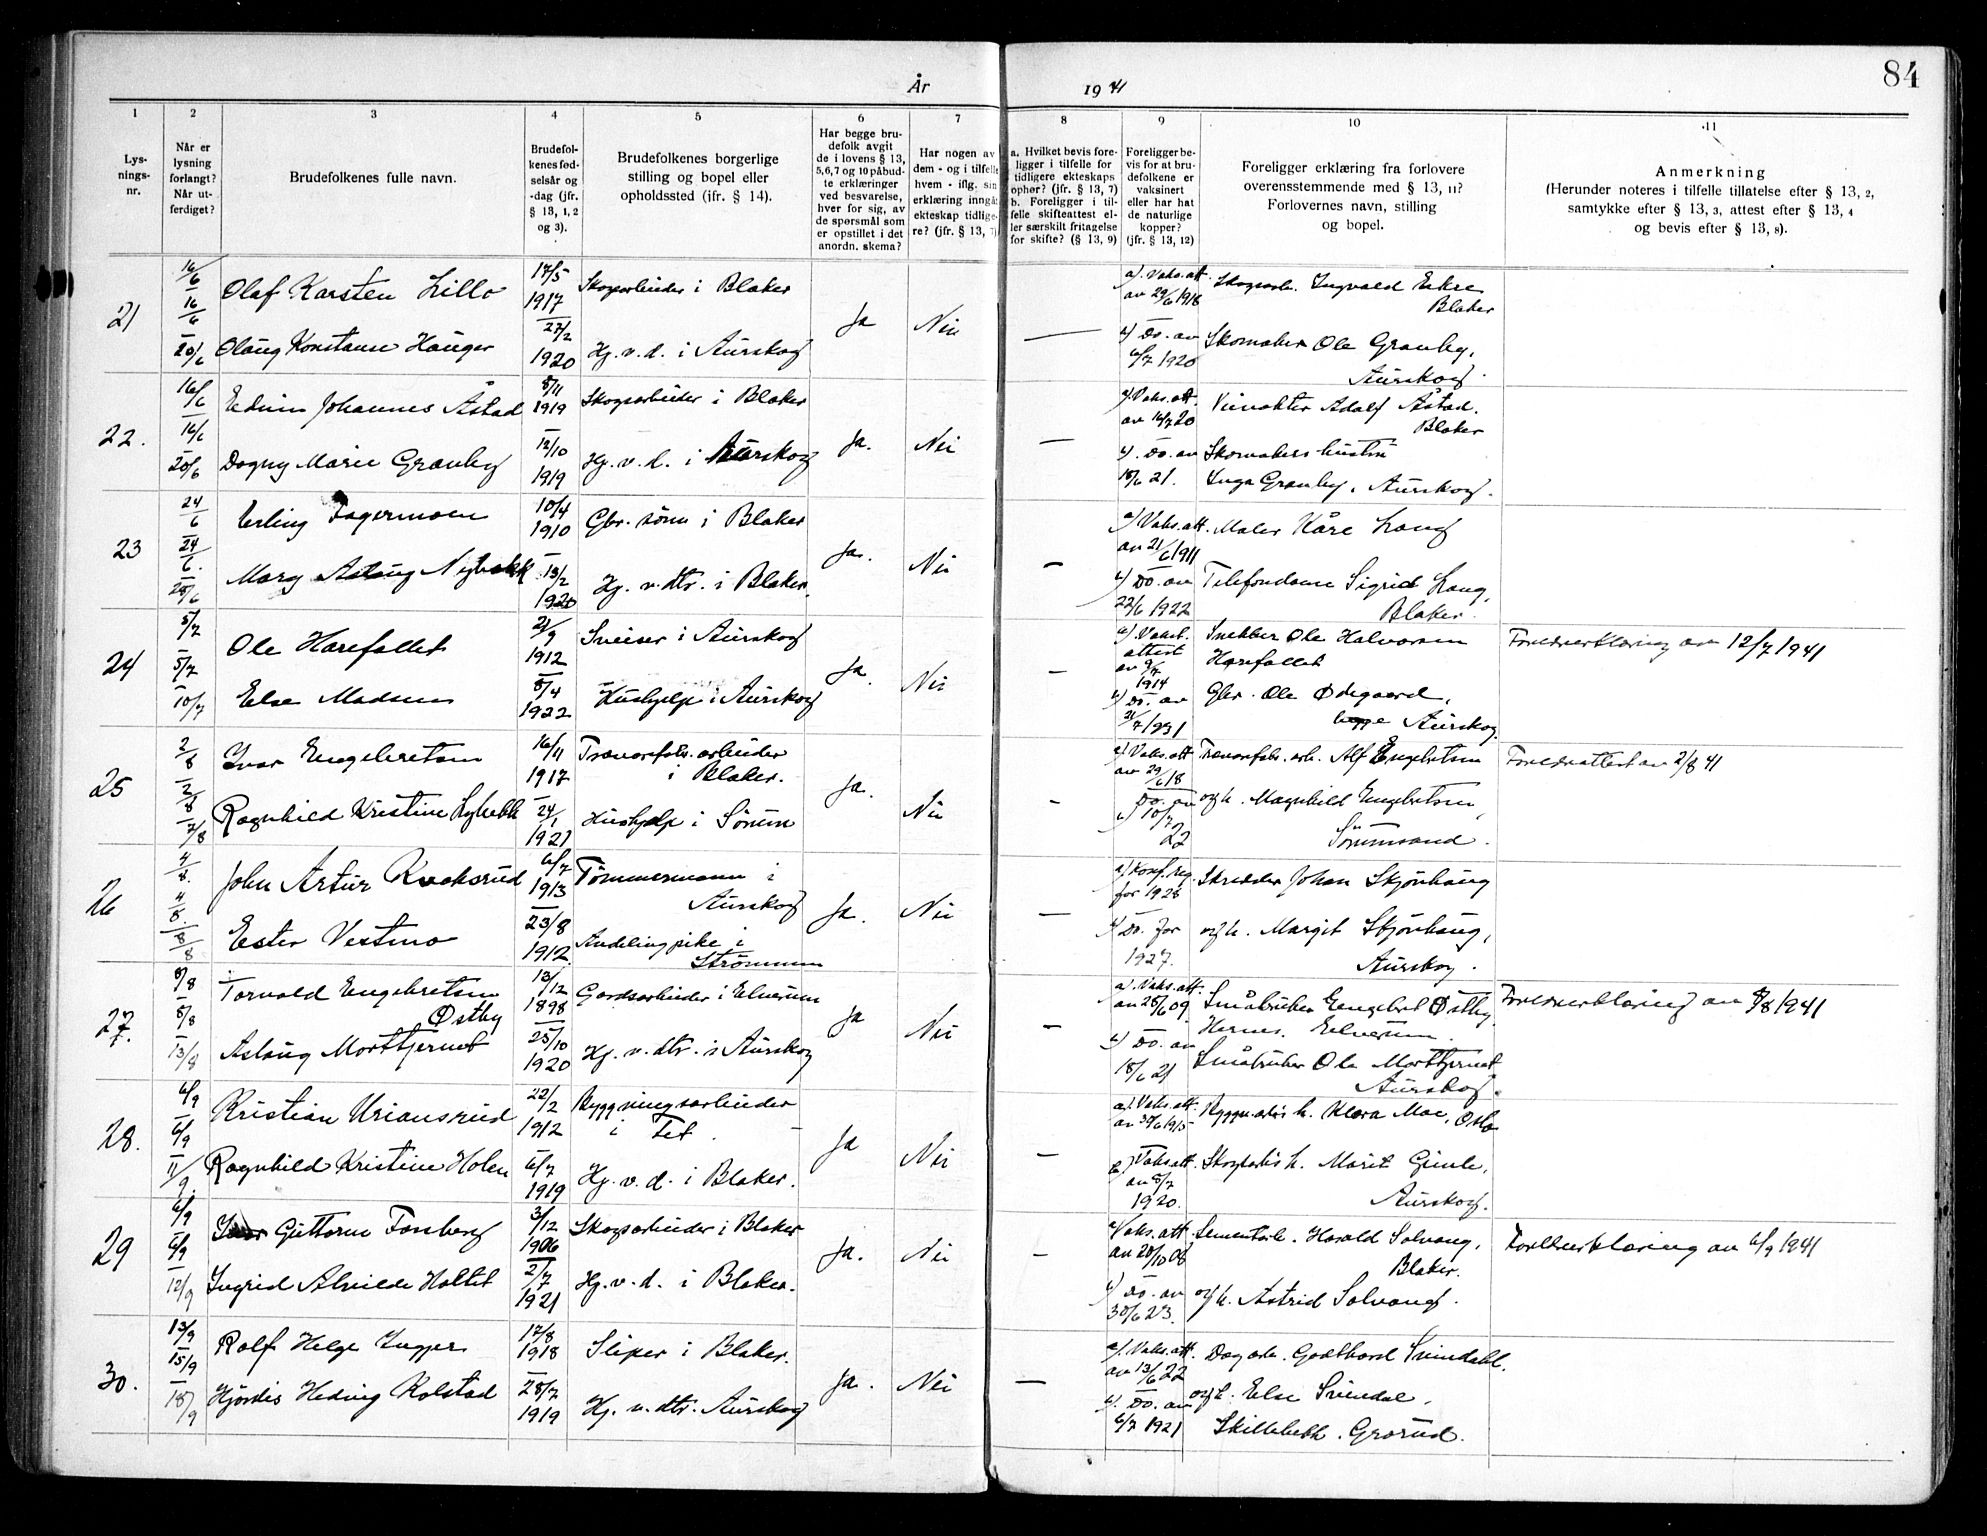 84
År 1941
1 2 3 4 5 6 7 8 9 10 11
Lys-
nings-
nr.
Når er
lysning
forlangt?
Når ut-
ferdiget?
Brudefolkenes fulle navn.
Brudefol-
kenes fød-
selsår og
-dag (jfr.
§ 13, 1, 2
og 3).
Brudefolkenes borgerlige
stilling og bopel eller
opholdssted (jfr. § 14).
Har begge bru-
defolk avgit
de i lovens § 13,
5,6,7 og 10 påbud-
te erklæringer
ved besvarelse,
hver for sig, av
de spørsmål som
er opstillet i det
anordn. skema?
Har nogen av
dem - og i tilfelle
hvem - iflg. sin
erklæring inngå
ekteskap tidlige-
re? (jfr. § 13, 7)
a. Hvilket bevis fore-
ligger i tilfelle for
tidligere ekteskaps
ophør? (jfr. § 13, 7)
b. Foreligger i til-
felle skifteattest el-
ler særskilt fritagelse
for skifte? (§ 13, 9)
Foreligger be-
vis for at bru-
defolkene er
vaksinert
eller har hat
de naturlige
kopper?
(jfr. § 13, 12)
Foreligger erklæring fra forlovere
overensstemmende med § 13, 11?
Forlovernes navn, stilling
og bopel.
Anmerkning
(Herunder noteres i tilfelle tillatelse efter § 13, 2,
samtykke efter § 13, 3, attest efter § 13, 4
og bevis efter § 13, 8).
21
16/6
16/6
20/6
Olaf Karsten Lillo
Olaug Konstanse Hauger
17/5
1917
27/2
1920
Skogsarbeider i Blaker
Hj. v. d. i Aurskog
Ja
Nei
—
a). Vaks. att.
av 29/6 1918
b) Do. av
6/7 1920
Skogsarb. Ingvald Eikre
Blaker
Skomaker Ole Granby,
Aurskog.
22.
16/6
16/6
20/6
Edvin Johannes Åstad
Dagny Marie Granby
8/11
1919
12/10
1919
Skogsarbeider i Blaker
Hj. v. d. i Aurskog
Ja.
Nei
—
a) Vaks. att.
av 14/7 20
b). Do. av
18/6 21.
Veivokter Adolf Åstad.
Blaker
Skomakers hustru
Inga Granby, Aurskog.
23
24/6
24/6.
28/6
Erling Fagermoen
Mary Aslaug Nybakk
10/4
1910
13/2
1920
Gbr. sønn i Blaker
Hj. v. dtr. i Blaker.
Ja.
Nei
—
a) Vaks. att.
av 21/6 1911
b) Do. av
22/6 1922
Maler Kåre Haug
Telefondame Sigrid Haug,
Blaker.
24
5/7
5/7
10/7
Ole Harefallet
Else Madsen
21/9
1912
8/4
1922
Sveiser i Aurskog
Hushjelp i Aurskog
Ja.
Nei
—
a) Vaks.
attest
av 9/7
1914
b) Do. av
21/7 1931
Snekker Ole Halvorsen
Harefallet
Gbr. Ole Ødegaard,
begge Aurskog.
Foreldreerklæring av 12/7 1941
25
2/8
2/8
7/8
Ivar Engebretsen
Ragnhild Kristine Lybekk
16/11
1917
24/1
1921
Trævarefabr. arbeider
i Blaker.
Hushjelp i Sørum
Ja.
Nei
-
a) Vaks. att
av 29/6 18
Do. av
b) 10/7
22
Trævarefabr. arb. Alf Engebretsen
og h. Magnhild Engebretsen,
Sørumsand.
Foreldreattest av 2/8 41
26
4/8.
4/8.
8/8
John Artur Kvaksrud
Ester Vestmo
6/7
1913
23/8
1912.
Tømmermann i
Aurskog
Avdelingspike i
Strømmen
Ja.
Nei
—
a) Konf. reg.
for 1928
b) Do. for
1927.
Skredder Johan Skjønhaug
og h. Margit Skjønhaug,
Aurskog.
27.
8/8
8/8
13/8
Torvald Engebretsen
Østby
Aslaug Morttjernet
13/12
1898
25/10
1920
Gårdsarbeider i Elverum
Hj. v. dtr. i Aurskog
Ja
Nei
—
a. Vaks. att.
av 28/6 09
b) Do. av
18/6 21
Småbruker Engebret Østby
Hernes. Elverum.
Småbruker Ole Morttjernet
Aurskog.
Foreldreerklæring av 8/8 1941
28.
6/9
6/9
11/9.
Kristian Uriansrud
Ragnhild Kristine Holen
22/2
1912
6/7
1919
Bygningsarbeider
i Fet.
Hj. v. d. i Blaker.
Ja
Nei
—
a). Vaks. att.
av 30/6 1915
b) Vaks. att.
av 8/7
1920.
Byggn. arb's h. Klara Moe, Oslo
Skogsarb's h. Marit Gimle,
Aurskog.
29
6/9
6/9
12/9
Guttorm Fossberg
Ingrid Alvilde Holtet
3/12
1906
2/7
1921
Skogsarbeider i Blaker
Hj. v. d. i Blaker.
Ja.
Nei
—
a) Vaks. att
av 20/10 08
b) Do. av
30/6 23.
Sementarb. Harald Solvang,
Blaker.
og h. Astrid Solvang.
Foreldreerklæring av 6/9 1941
30.
13/9
15/9
18/9
Rolf Helge Ingjer
Hjørdis Hedvig Kolstad
17/8
1918
28/7
1919
Sliper i Blaker.
Hj. v. dtr. Aurskog
Ja.
Nei
—
a). Vaks. att.
av 13/6 22
b). Do. av
6/7 1921
Dagarb. Godthard Svindahl.
og h. Else Svendal,
Skillebekk. Grorud.